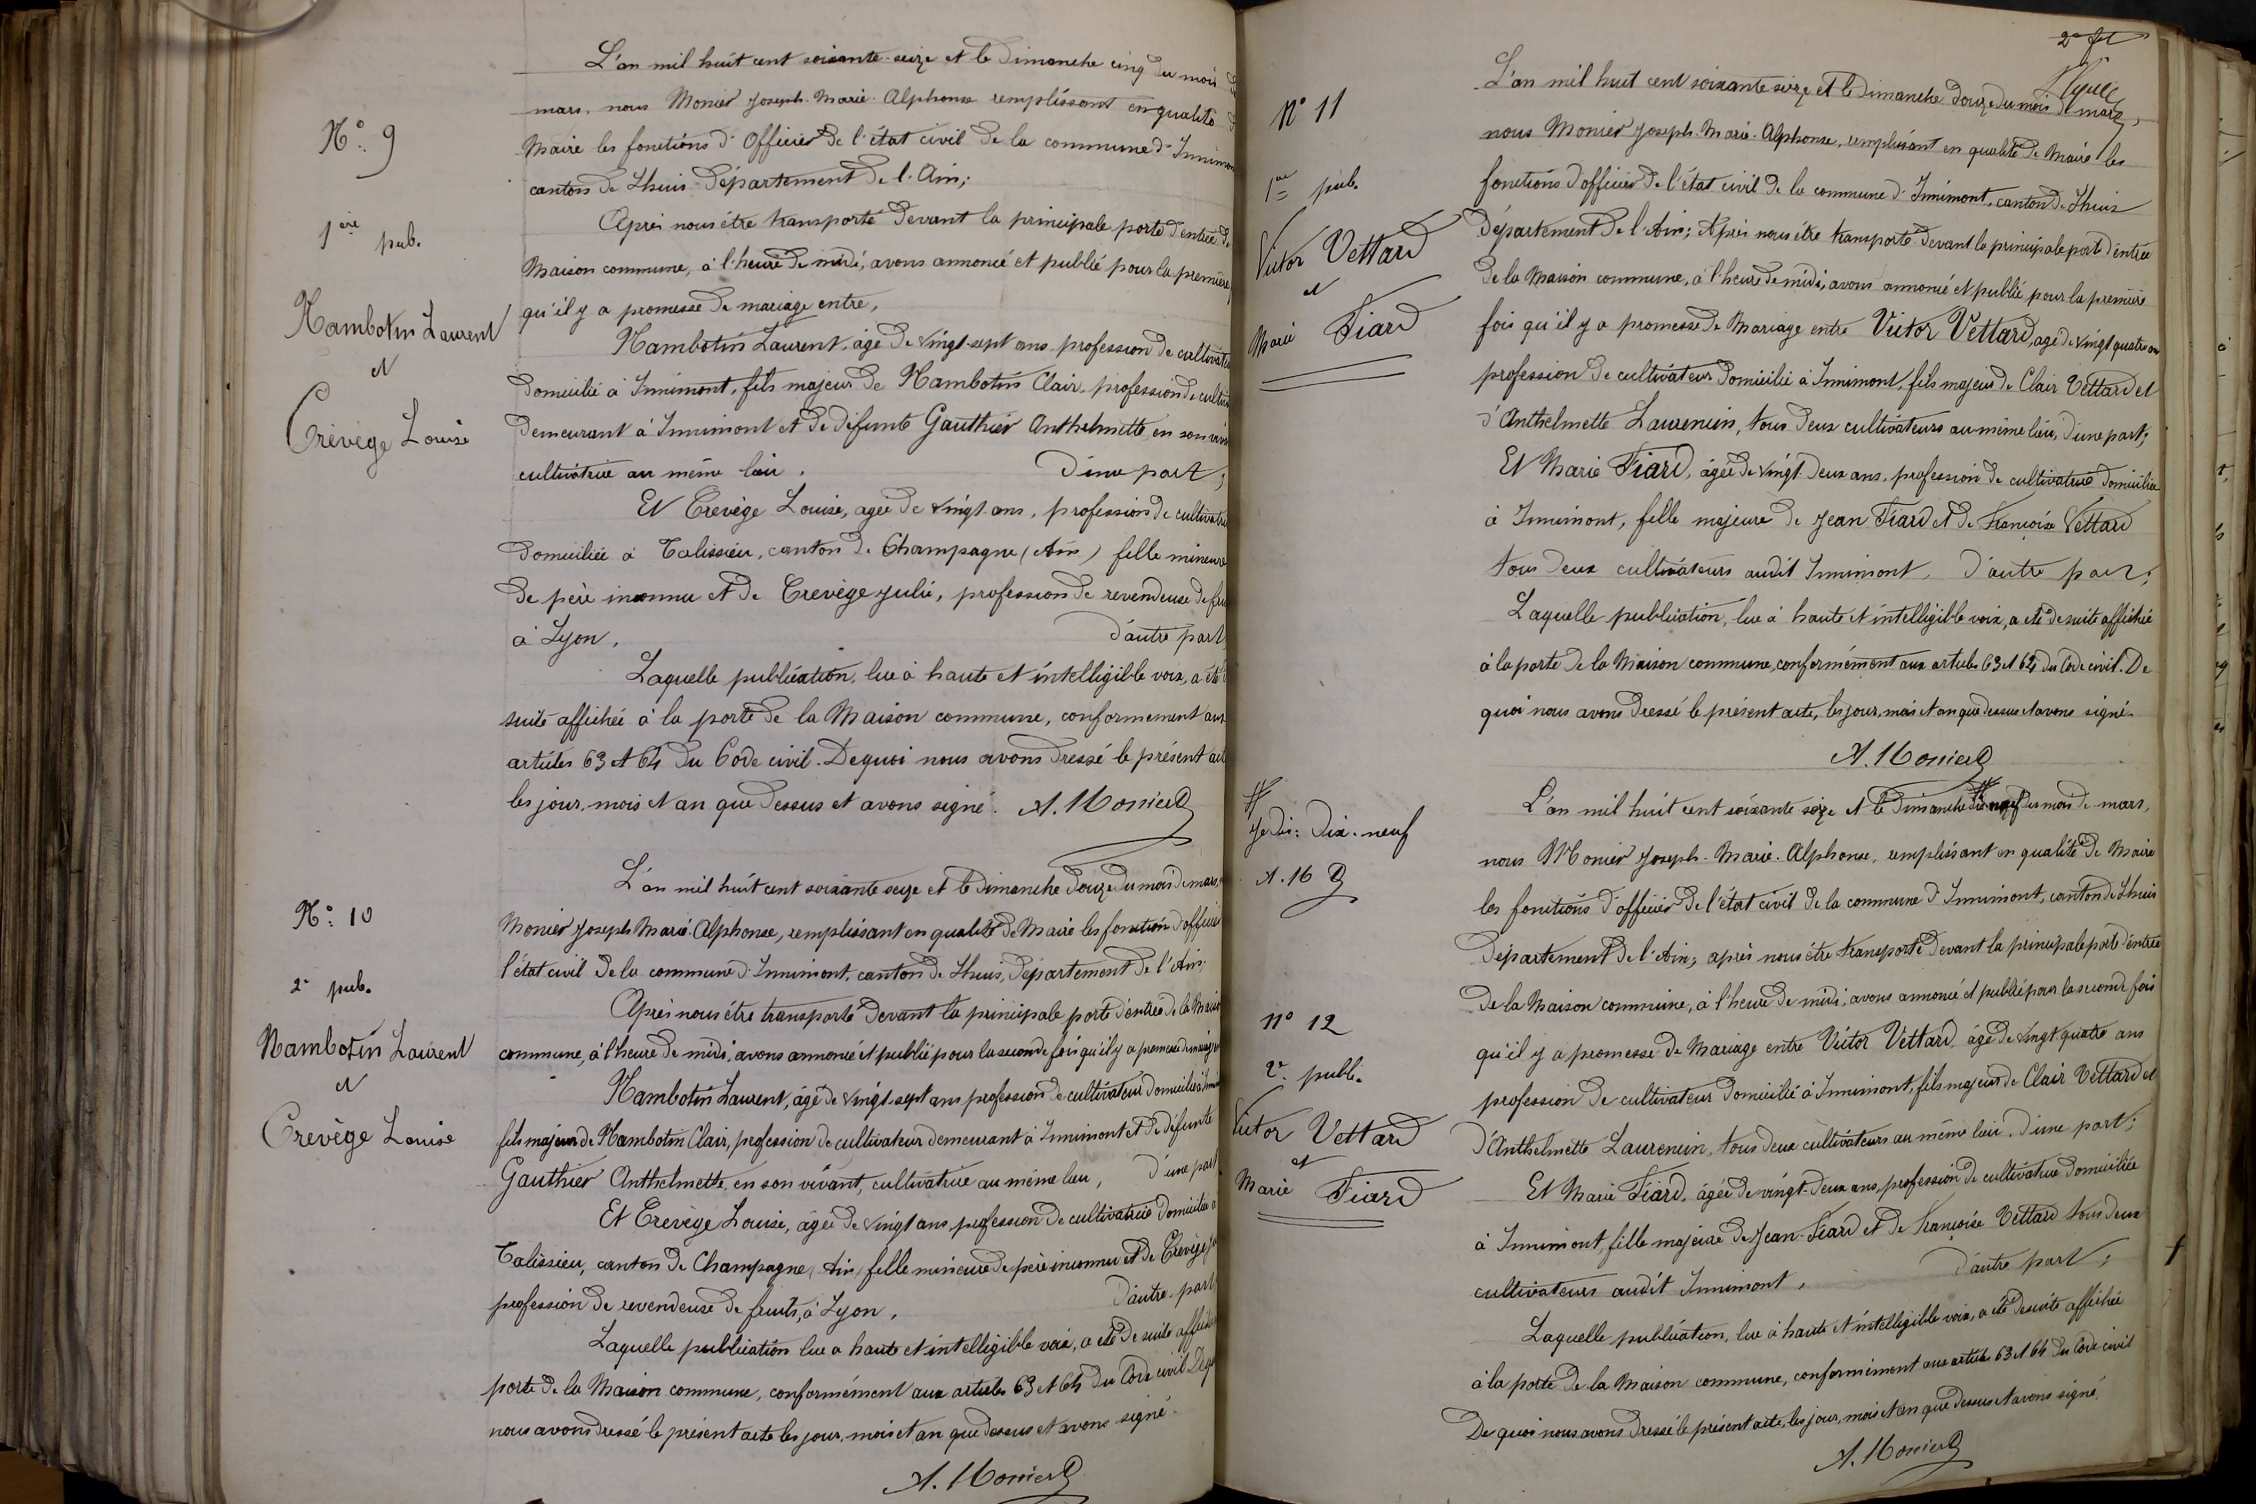 L'an mil huit cent soixante-seize et le Dimanche cinq du mois
N°. 9
mars, nous Monier Joseph-Marie-Alphonse remplissant en qualité
Maire les fonctions d'Officier de l'état civil de la commune d'Innimont
canton de Lhuis Département de l'Ain;
1ère pub.
Après nous être transporté devant la principale porte d'entrée de
Maison commune, à l'heure de midi, avons annoncé et publié pour la première
qu'il y a promesse de mariage entre,
Nambotin Laurent
et
Crevège Louise
Nambotin Laurent, âgé de vingt-sept ans profession de cultivateur
domicilié à Innimont, fils majeur de Nambotin Clair, profession de
demeurant à Innimont et de défunte Gauthier Anthelmette en son
cultivatrice au même lieu, D'une part;
Et Crevège Louise, agée de vingt ans, profession de cultivatrice
domiciliée à Talissieu, canton de Champagne (Ain) fille mineure
de père inconnu et de Crevège Julie, profession de revendeuse de
à Lyon, d'autre part
Laquelle publication, lue à haute et intelligible voix, a été
suite affichée à la porte de la Maison commune, conformement aux
articles 63 et 64 du Code civil. De quoi nous avons dressé le présent
les jour, mois et an que dessus et avons signé. A. Monier
N°. 10
2e pub.
Nambotin Laurent
et
Crevège Louise
L'an mil huit cent soixante seize et le Dimanche douze du mois de mars,
Monier Joseph Marie-Alphonse, remplissant en qualité de Maire les fonction d'officier
l'état civil de la commune d'Innimont, canton de Lhuis, Département de l'Ain;
Après nous être transporté devant la principale porte d'entrée de la Maison
commune, à l'heure de midi, avons annoncé et publié pour la seconde fois qu'il y a promesse de mariage
Nambotin Laurent, âgé de vingt-sept ans profession de cultivateur domicilié à
fils majeur de Nambotin Clair, profession de cultivateur demeurant à Innimont et de défunte
Gauthier Anthelmette, en son vivant, cultivatrice au même lieu, d'une part
Et Crevège Louise, âgée de vingt ans, profession de cultivatrice domiciliée à
Talissieu, canton de Champagne, Ain, fille mineure de père inconnu et de Crevège
profession de revendeuse de fruits, à Lyon, d'autre part
Laquelle publication lue à haute et intelligible voix, a été de suite affichée
porte de la Maison commune, conformément aux articles 63 et 64 du Code civil. De
nous avons dressé le présent acte les jour, mois et an que dessus et avons signé.
A. Monier
2e ft
N° 11
1ère pub.
Victor Vettard
et
Marie Fiard
L'an mil huit cent soixante seize et le Dimanche douze du mois de mars,
nous Monier Joseph-Marie-Alphonse, remplissant en qualité de Maire les
fonctions d'officier de l'état civil de la commune d'Innimont, canton de Lhuis
Département de l'Ain; Après nous être transporté devant la principale porte d'entrée
de la Maison commune, à l'heure de midi, avons annoncé et publié pour la première
fois qu'il y a promesse de Mariage entre Victor Vettard, agé de vingt quatre ans
profession de cultivateur domicilié à Innimont, fils majeur de Clair Vettard et
d'Anthelmette Laurencin, tous deux cultivateurs au même lieu, d'une part;
Et Marie Fiard, âgée de vingt-deux ans, profession de cultivatrice domiciliée
à Innimont, fille majeure de Jean Fiard et de Françoise Vettard
tous deux cultivateurs audit Innimont, d'autre part;
Laquelle publication, lue à haute et intelligible voix, a été de suite affichée
à la porte de la Maison commune, conformément aux articles 63 et 64 du Code civil. De
quoi nous avons dressé le présent acte, les jour, mois et an que dessus et avons signé.
A. Monier
Je dis: Dix-neuf
A. M
N° 12
2e publi.
Victor Vettard
et
Marie Fiard
L'an mil huit cent soixante seize et le Dimanche dix neuf du mois de mars,
nous Monier Joseph-Marie-Alphonse, remplissant en qualité de Maire
les fonctions d'officier de l'état civil de la commune d'Innimont, canton de Lhuis
Département de l'Ain; après nous être transporté devant la principale porte d'entrée
de la Maison commune, à l'heure de midi, avons annoncé et publié pour la seconde fois
qu'il y a promesse de Mariage entre Victor Vettard, âgé de vingt-quatre ans
profession de cultivateur domicilié à Innimont, fils majeur de Clair Vettard et
d'Anthelmette Laurencin, tous deux cultivateurs au même lieu, d'une part;
Et Marie Fiard, âgée de vingt-deux ans, profession de cultivatrice domiciliée
à Innimont, fille majeure de Jean-Fiard et de Françoise Vettard tous deux
cultivateurs audit Innimont, d'autre part;
Laquelle publication, lue à haute et intelligible voix, a été de suite affichée
à la porte de la Maison commune, conformément aux articles 63 et 64 du Code civil
De quoi nous avons dressé le présent acte, les jour, mois et an que dessus et avons signé.
A. Monier